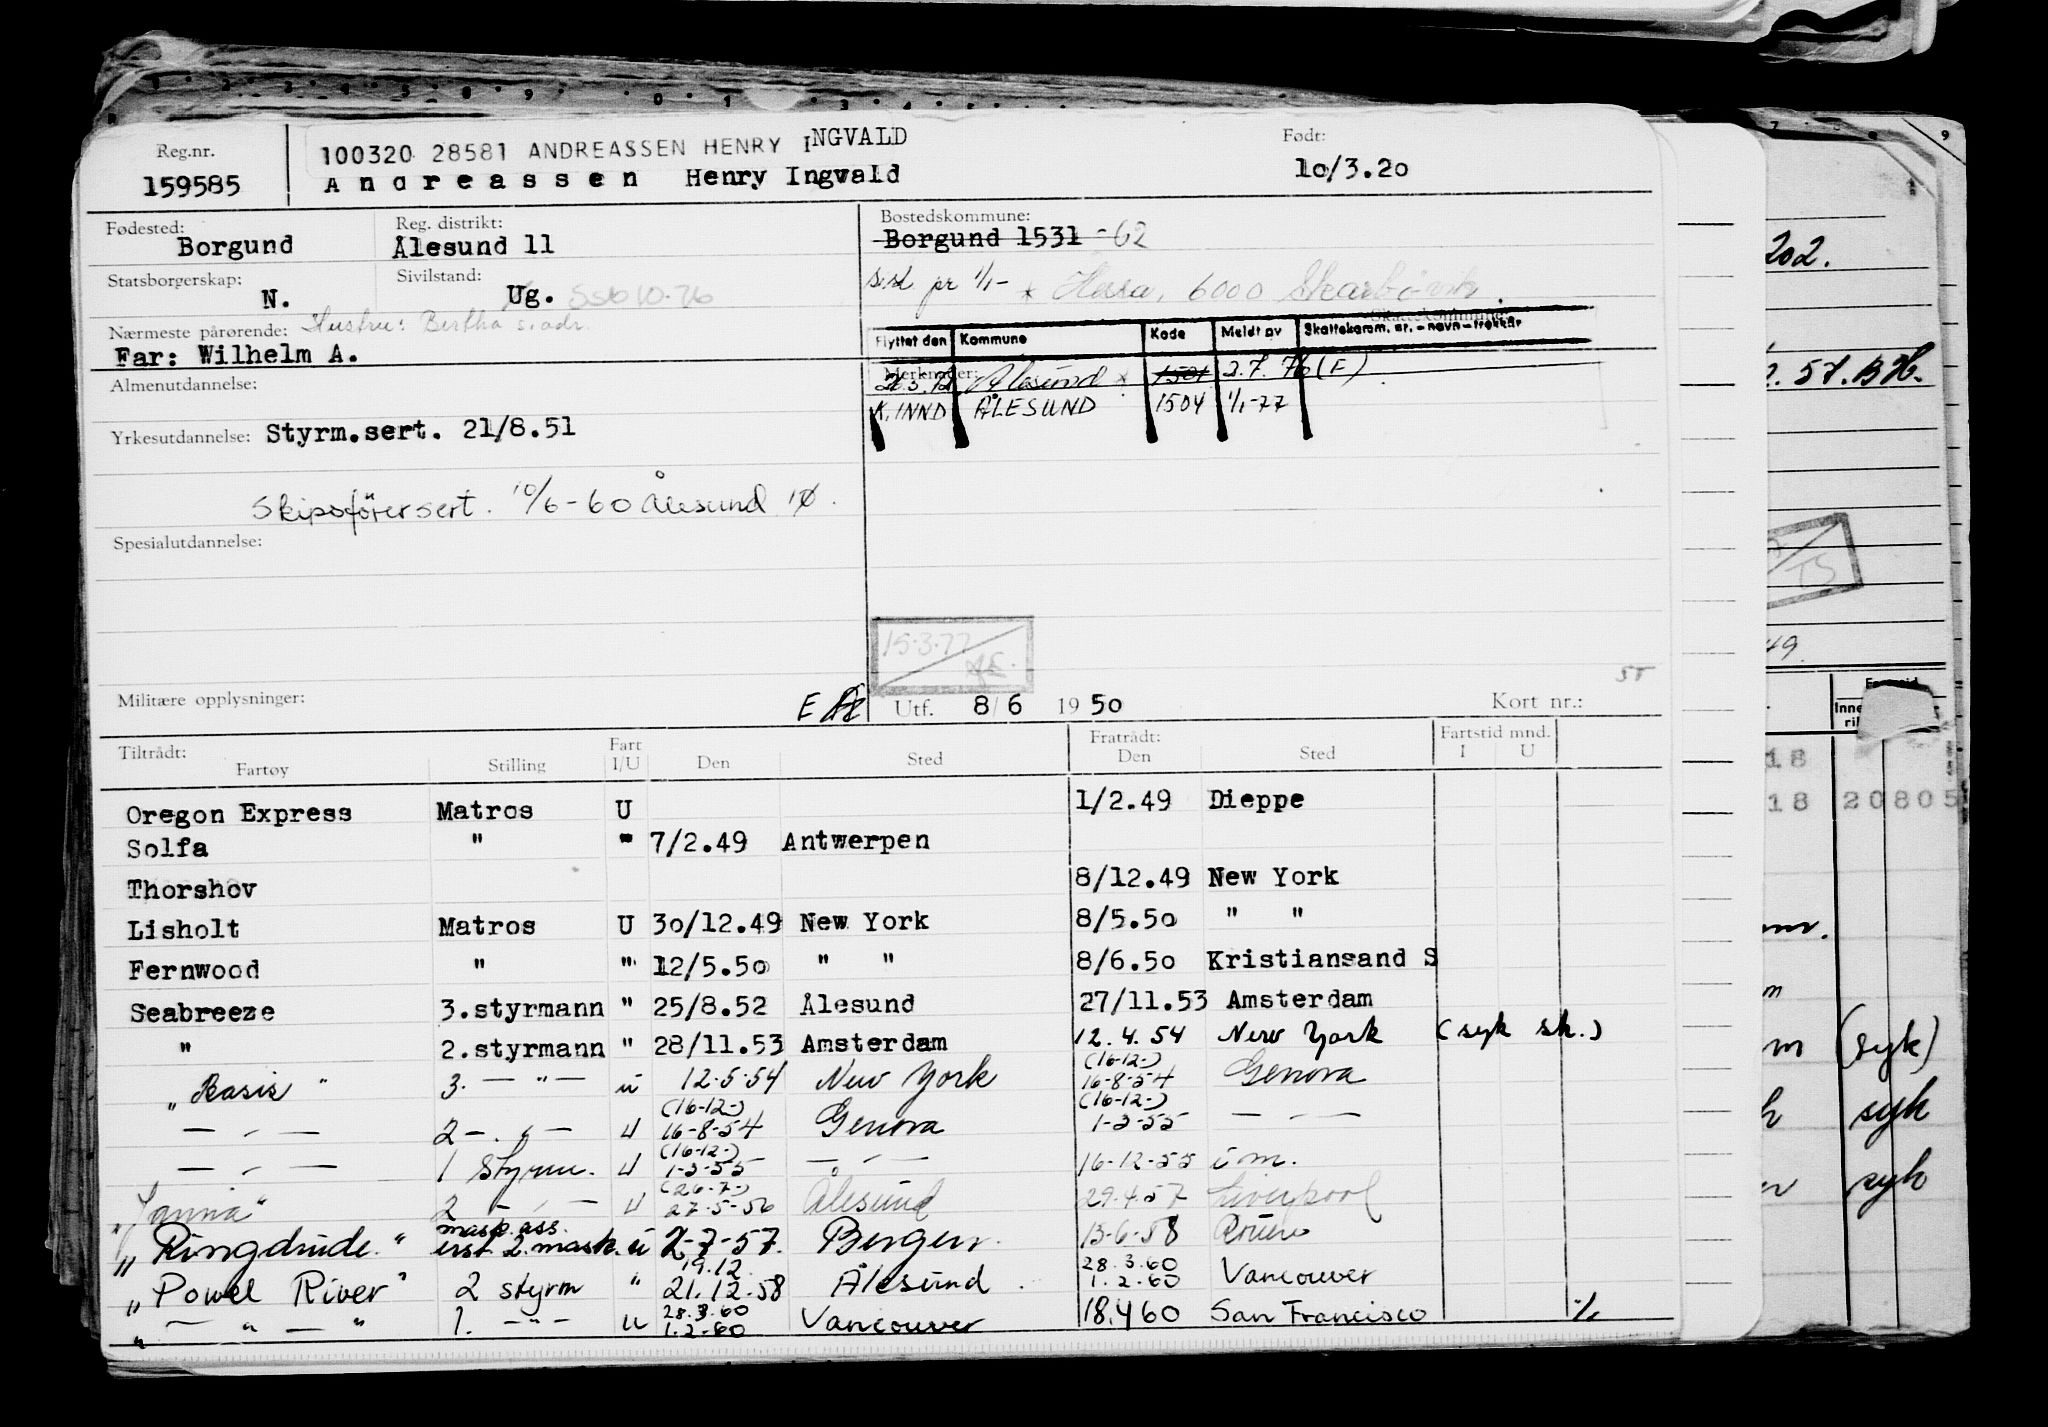 Reg.nr. 100320 28581 ANDREASSEN HENRY INGVALD Født:
159585 Andreassen Henry Ingvald 10/3.20
Fødested: Borgund Reg. distrikt: Ålesund 11 Bostedskommune: Borgund 1531 -62
Statsborgerskap: N. Sivilstand: Ug. pr 1/1- Hessa, 6000 Skarbøvik.
Nærmeste pårørende: Hustru: Bertha s.adr.
Far: Wilhelm A.
Skattekommune:
Flyttet den Kommune Kode Meldt av Skattekomm. nr. - navn - trekkår
Merknader:
Ålesund 1501 2.7.76 (E)
K.INND ÅLESUND 1504 1/1-77
Almenutdannelse:
Yrkesutdannelse: Styrm.sert. 21/8.51
Skipsförersert. 10/6-60 Ålesund
Spesialutdannelse:
15.3.77
Militære opplysninger: E Utf. 8/6 1950 Kort nr.:
Tiltrådt: Fartøy Stilling Fart I/U Den Sted Fratrådt: Den Sted Fartstid mnd. I U
Oregon Express Matros U 1/2.49 Dieppe
Solfa " " 7/2.49 Antwerpen
Thorshov 8/12.49 New York
Lisholt Matros U 30/12.49 New York 8/5.50 " "
Fernwood " " 12/5.50 " " 8/6.50 Kristiansand S
Seabreeze 3.styrmann " 25/8.52 Ålesund 27/11.53 Amsterdam
" 2.styrmann " 28/11.53 Amsterdam 12.4.54 New York (syk sk.)
"Basis" 3. — " — u 12.5.54 New York (16-12-) 16-8-54 Genova
— " — 2 —. " — u (16-12-) 16-8-54 Genova (16-12-) 1-3-55 — " —
— " — 1 styrm. u (16-12-) 1-3-55 — " — 16-12-55 i m.
"Janna" 2 — " — u (26-7-) 27-5-56 Ålesund 29.4.57 Liverpool
"Ringdrude" mask.ass. erst 2. mask. u 2-7-57. Bergen. 13-6-58 Rouen
"Powel River" 2 styrm " 19.12. 21.12.58 Ålesund 28.3.60 1.2.60 Vancouver
" — " — " 1. — " — u 28.3.60 1.2-60 Vancouver 18.4 60 San Francisco
202.
57. BH.
TS
49.
18
18 20805
m (syk)
syk
syk